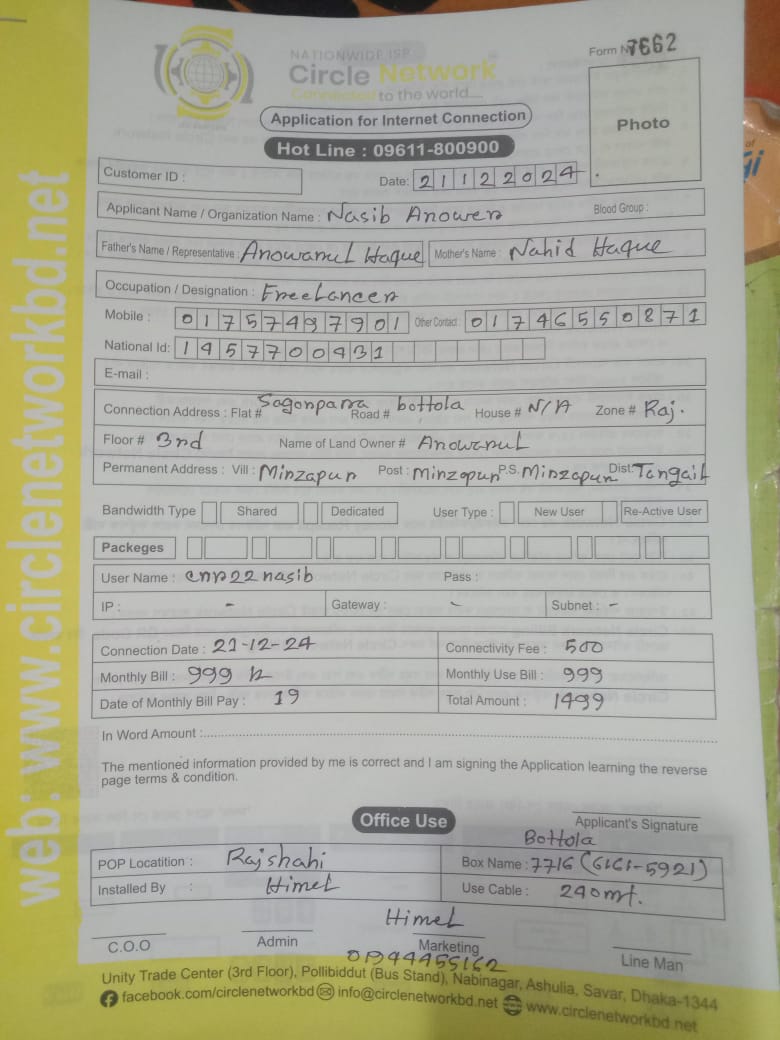 NATIONWIDE ISP
Circle Network
Connected to the world....
Form No 7662
Application for Internet Connection
Photo
Hot Line : 09611-800900
Customer ID :
Date: 21122024
Applicant Name / Organization Name : Nasib Anower Blood Group :
Father's Name / Representative : Anowarul Haque Mother's Name : Nahid Haque
Occupation / Designation : Freelancer
Mobile : 01757497901 Other Contact : 01746550871
National Id: 1457700431
E-mail :
Connection Address : Flat # Sagorparra Road # bottola House # N/A Zone # Raj.
Floor # 3rd Name of Land Owner # Anowarul
Permanent Address : Vill : Mirzapur Post : Mirzapur P.S. Mirzapur Dist: Tangail
Bandwidth Type Shared Dedicated User Type : New User Re-Active User
Packeges
User Name : cnp22nasib Pass :
IP : - Gateway : - Subnet : -
Connection Date : 21-12-24 Connectivity Fee : 500
Monthly Bill : 999 Monthly Use Bill : 999
Date of Monthly Bill Pay : 19 Total Amount : 1499
In Word Amount :
The mentioned information provided by me is correct and I am signing the Application learning the reverse
page terms & condition.
Applicant's Signature
Office Use
Bottola
POP Locatition : Rajshahi Box Name : 7716 (G1G1-5921)
Installed By : Himel Use Cable : 240mt.
Himel
C.O.O Admin Marketing Line Man
01944455162
Unity Trade Center (3rd Floor), Pollibiddut (Bus Stand), Nabinagar, Ashulia, Savar, Dhaka-1344
facebook.com/circlenetworkbd info@circlenetworkbd.net www.circlenetworkbd.net
web: www.circlenetworkbd.net